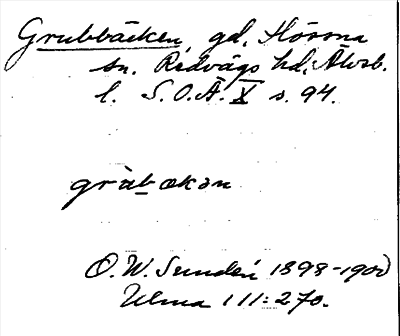 Grubbäcken, gd, Hössna
sn. Redvägs hd, Älvsb.
l. S.O.Ä. X s. 94.
grùbækən
O. W. Sundén 1898-1900
Ulma 111:270.